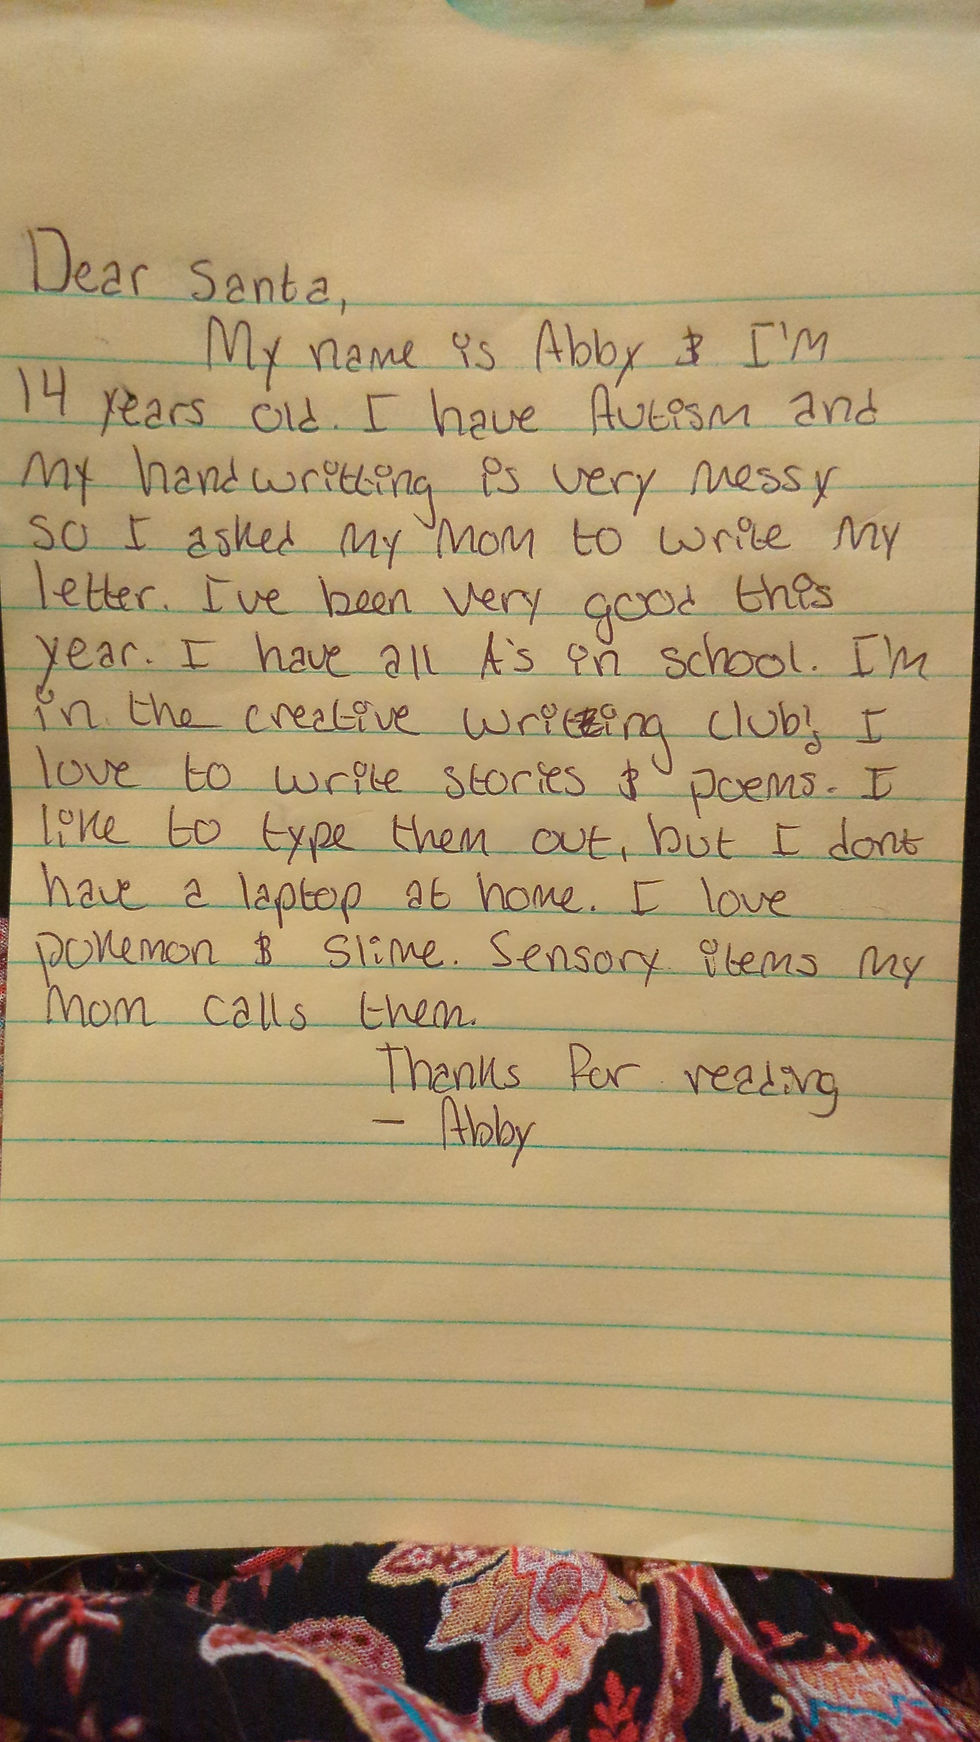 Dear Santa,
My name is Abby & I'm
14 years old. I have Autism and
my handwritting is very messy
so I asked my mom to write my
letter. I've been very good this
year. I have all A's in school. I'm
in the creative writing club; I
love to write stories & poems. I
like to type them out, but I dont
have a laptop at home. I love
pokemon & slime. Sensory items my
mom calls them.
Thanks for reading
- Abby